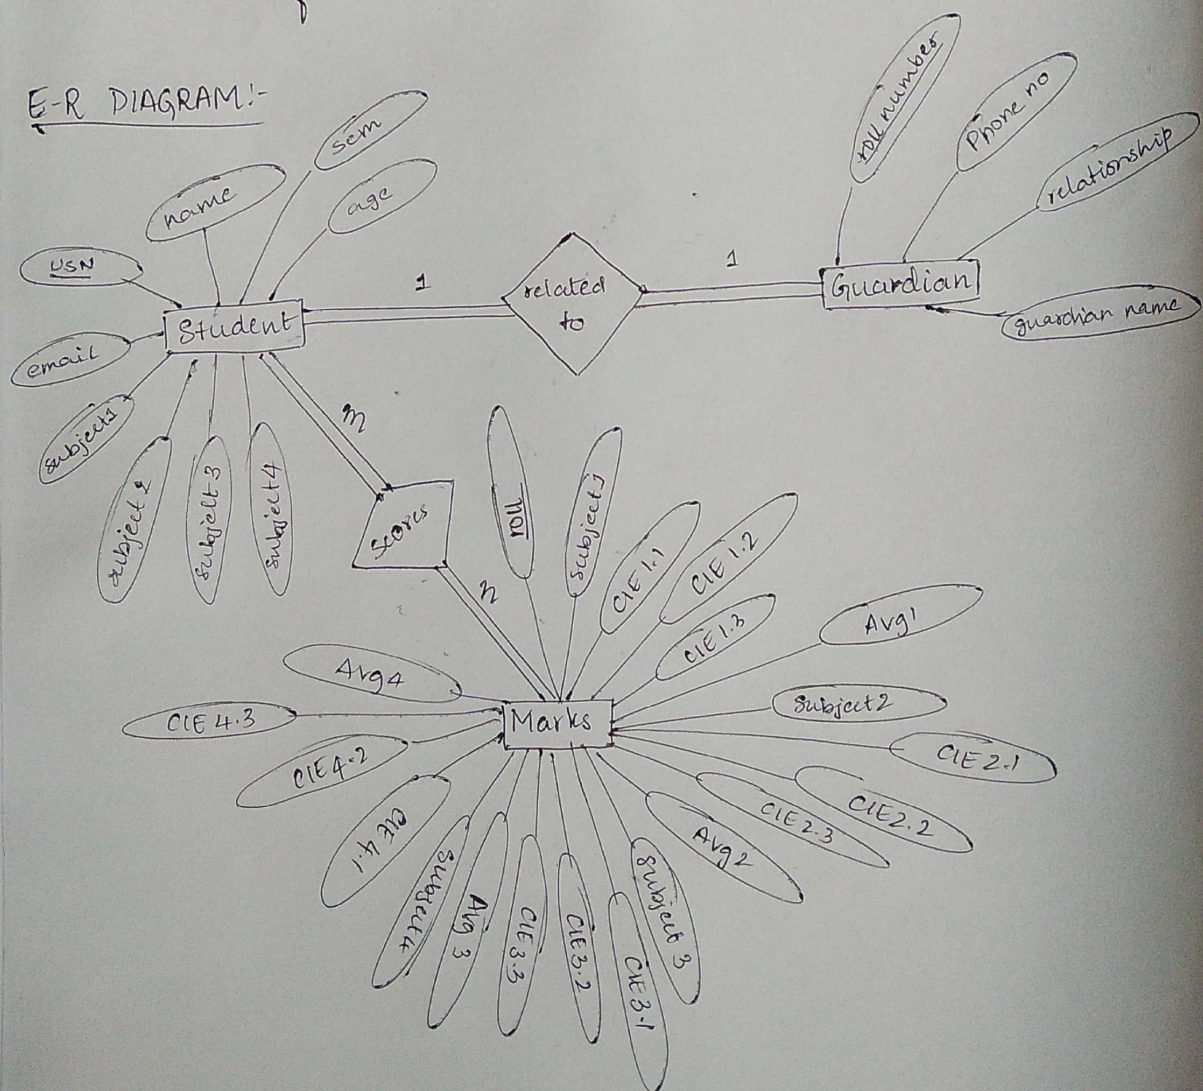 E-R DIAGRAM:-
sem
name
age
USN
email
Student
subject1
subject 2
subject 3
subject 4
1
related
to
1
roll number
Phone no
relationship
Guardian
guardian name
scores
roll
subject1
CIE 1.1
CIE 1.2
CIE 1.3
Avg1
Marks
Subject2
CIE 2.1
CIE2.2
CIE 2.3
Avg2
subject 3
CIE 3.1
CIE3.2
CIE 3.3
Avg 3
Subject4
CIE 4.1
CIE4.2
CIE 4.3
Avg4